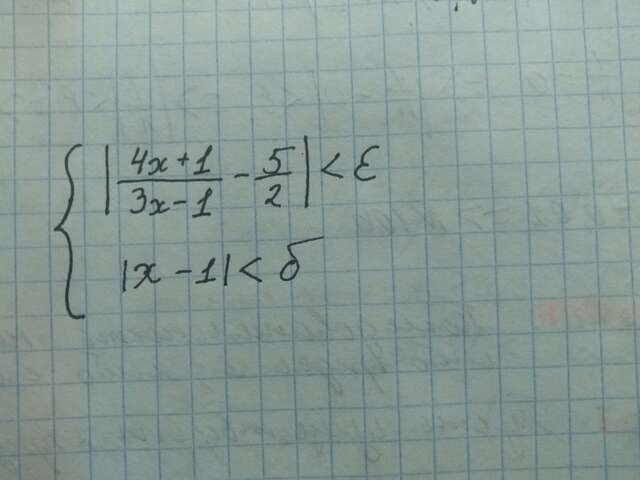 |4x+1/3x-1 - 5/2| < ε
|x - 1| < δ